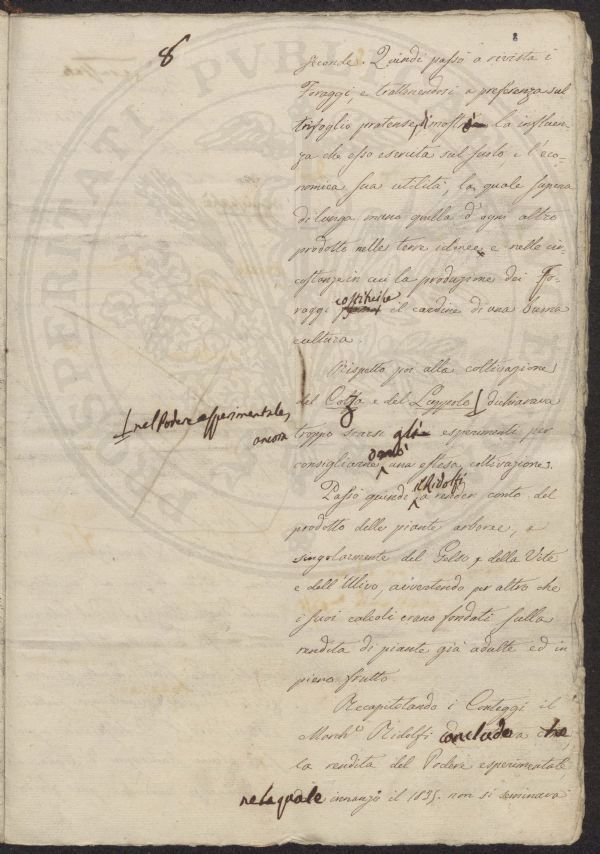 8
seconde. Quindi passò a rivista i
Foraggi, e trattenendosi a preferenza sul
trifoglio pratense, dimostrò la influen-
za che esso esercita sul suolo, e l'eco-
nomica sua utilità, la quale supera
di lunga mano quella d'ogni altro
prodotto nelle terre idonee, e nelle cir-
costanze in cui la produzione dei fo-
raggi costituisce il cardine di una buona
cultura.
Rispetto poi alla coltivazione
del Colza e del Luppolo dichiarava
nel Podere esperimentale,
ancora
troppo scarsi gli esperimenti per
consigliarne una estesa coltivazione.
Passò quindi il Ridolfi a render conto del
prodotto delle piante arboree, e
singolarmente del Gelso, della Vite
e dell'Ulivo, avvertendo per altro che
i suoi calcoli erano fondati sulla
rendita di piante già adulte ed in
pieno frutto.
Recapitolando i Conteggi il
March.e Ridolfi conclude che
la rendita del Podere esperimentale
nel quale innanzi il 1835. non si seminava